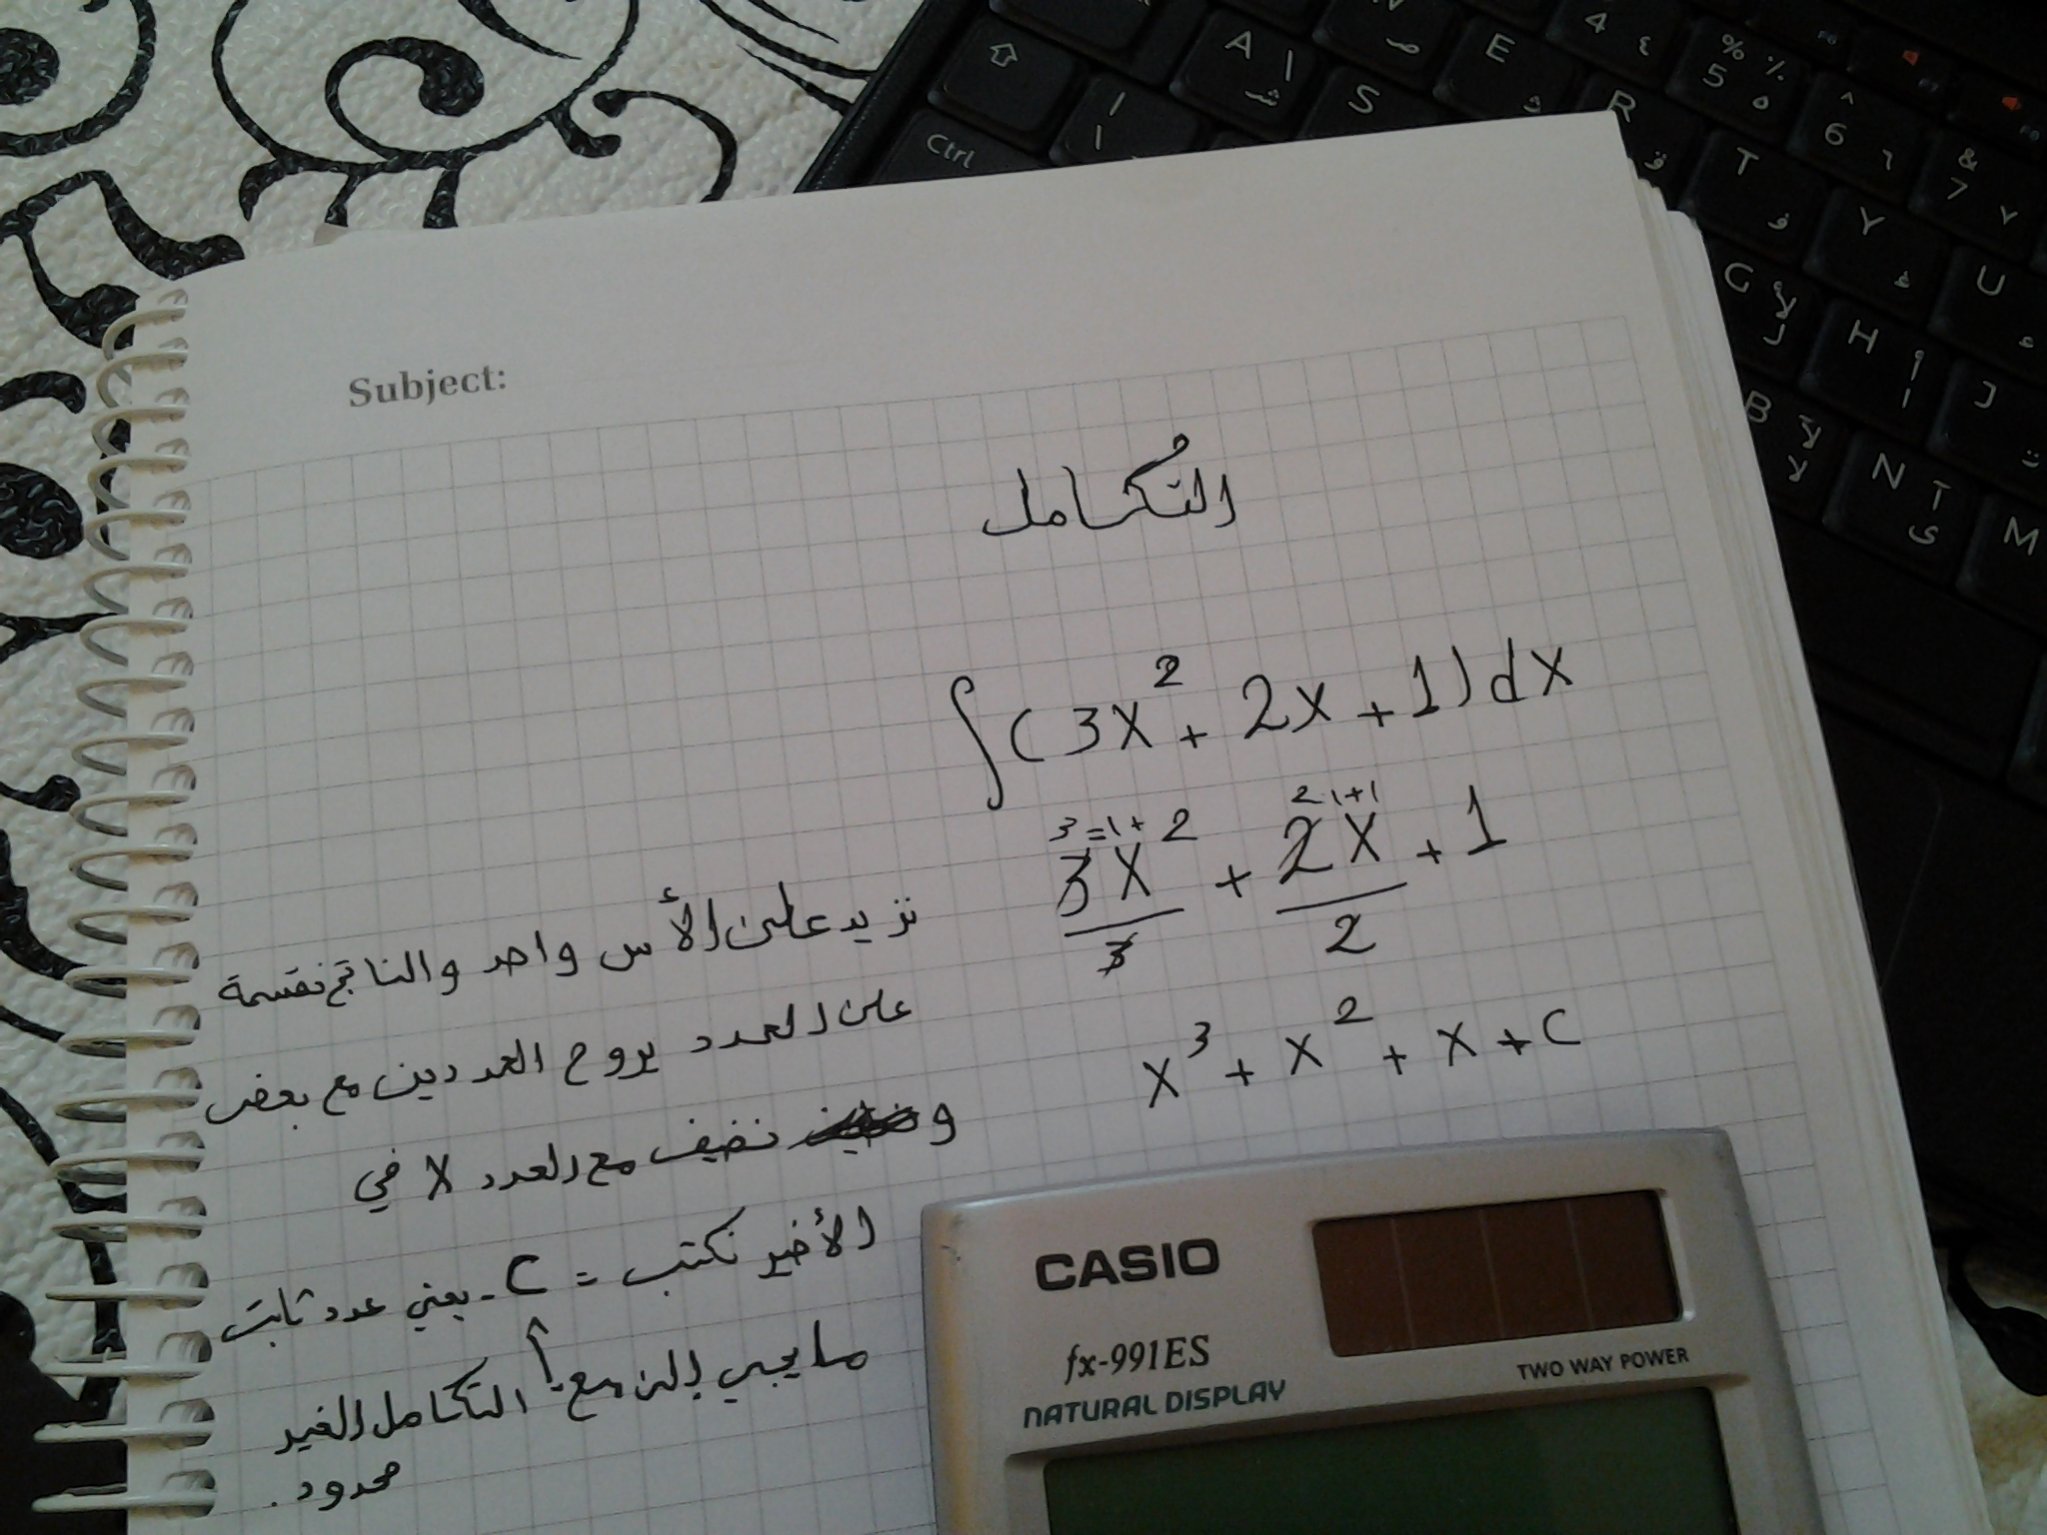 Subject:
التُكامل
∫(3X² + 2X + 1)dX
3=1+2 21+1
3X + 2X + 1
3 2
X³ + X² + X + C
نزيد على الأس واحد والناتج نقسمة
على العدد يروح العددين مع بعض
و نضيف مع العدد X في
الأخير نكتب = C - يعني عدد ثابت
ما يجي إلى مع التكامل الغير
محدود.
CASIO
fx-991ES
NATURAL DISPLAY
TWO WAY POWER
Ctrl
A ش
S
E ث
R ق
4 ٤
% ٪
5 ٥
^
6 ٦
&
7 ٧
T ف
Y غ
U ع
G لأ ل
H أ ا
J ت
B لآ لا
N آ ى
M